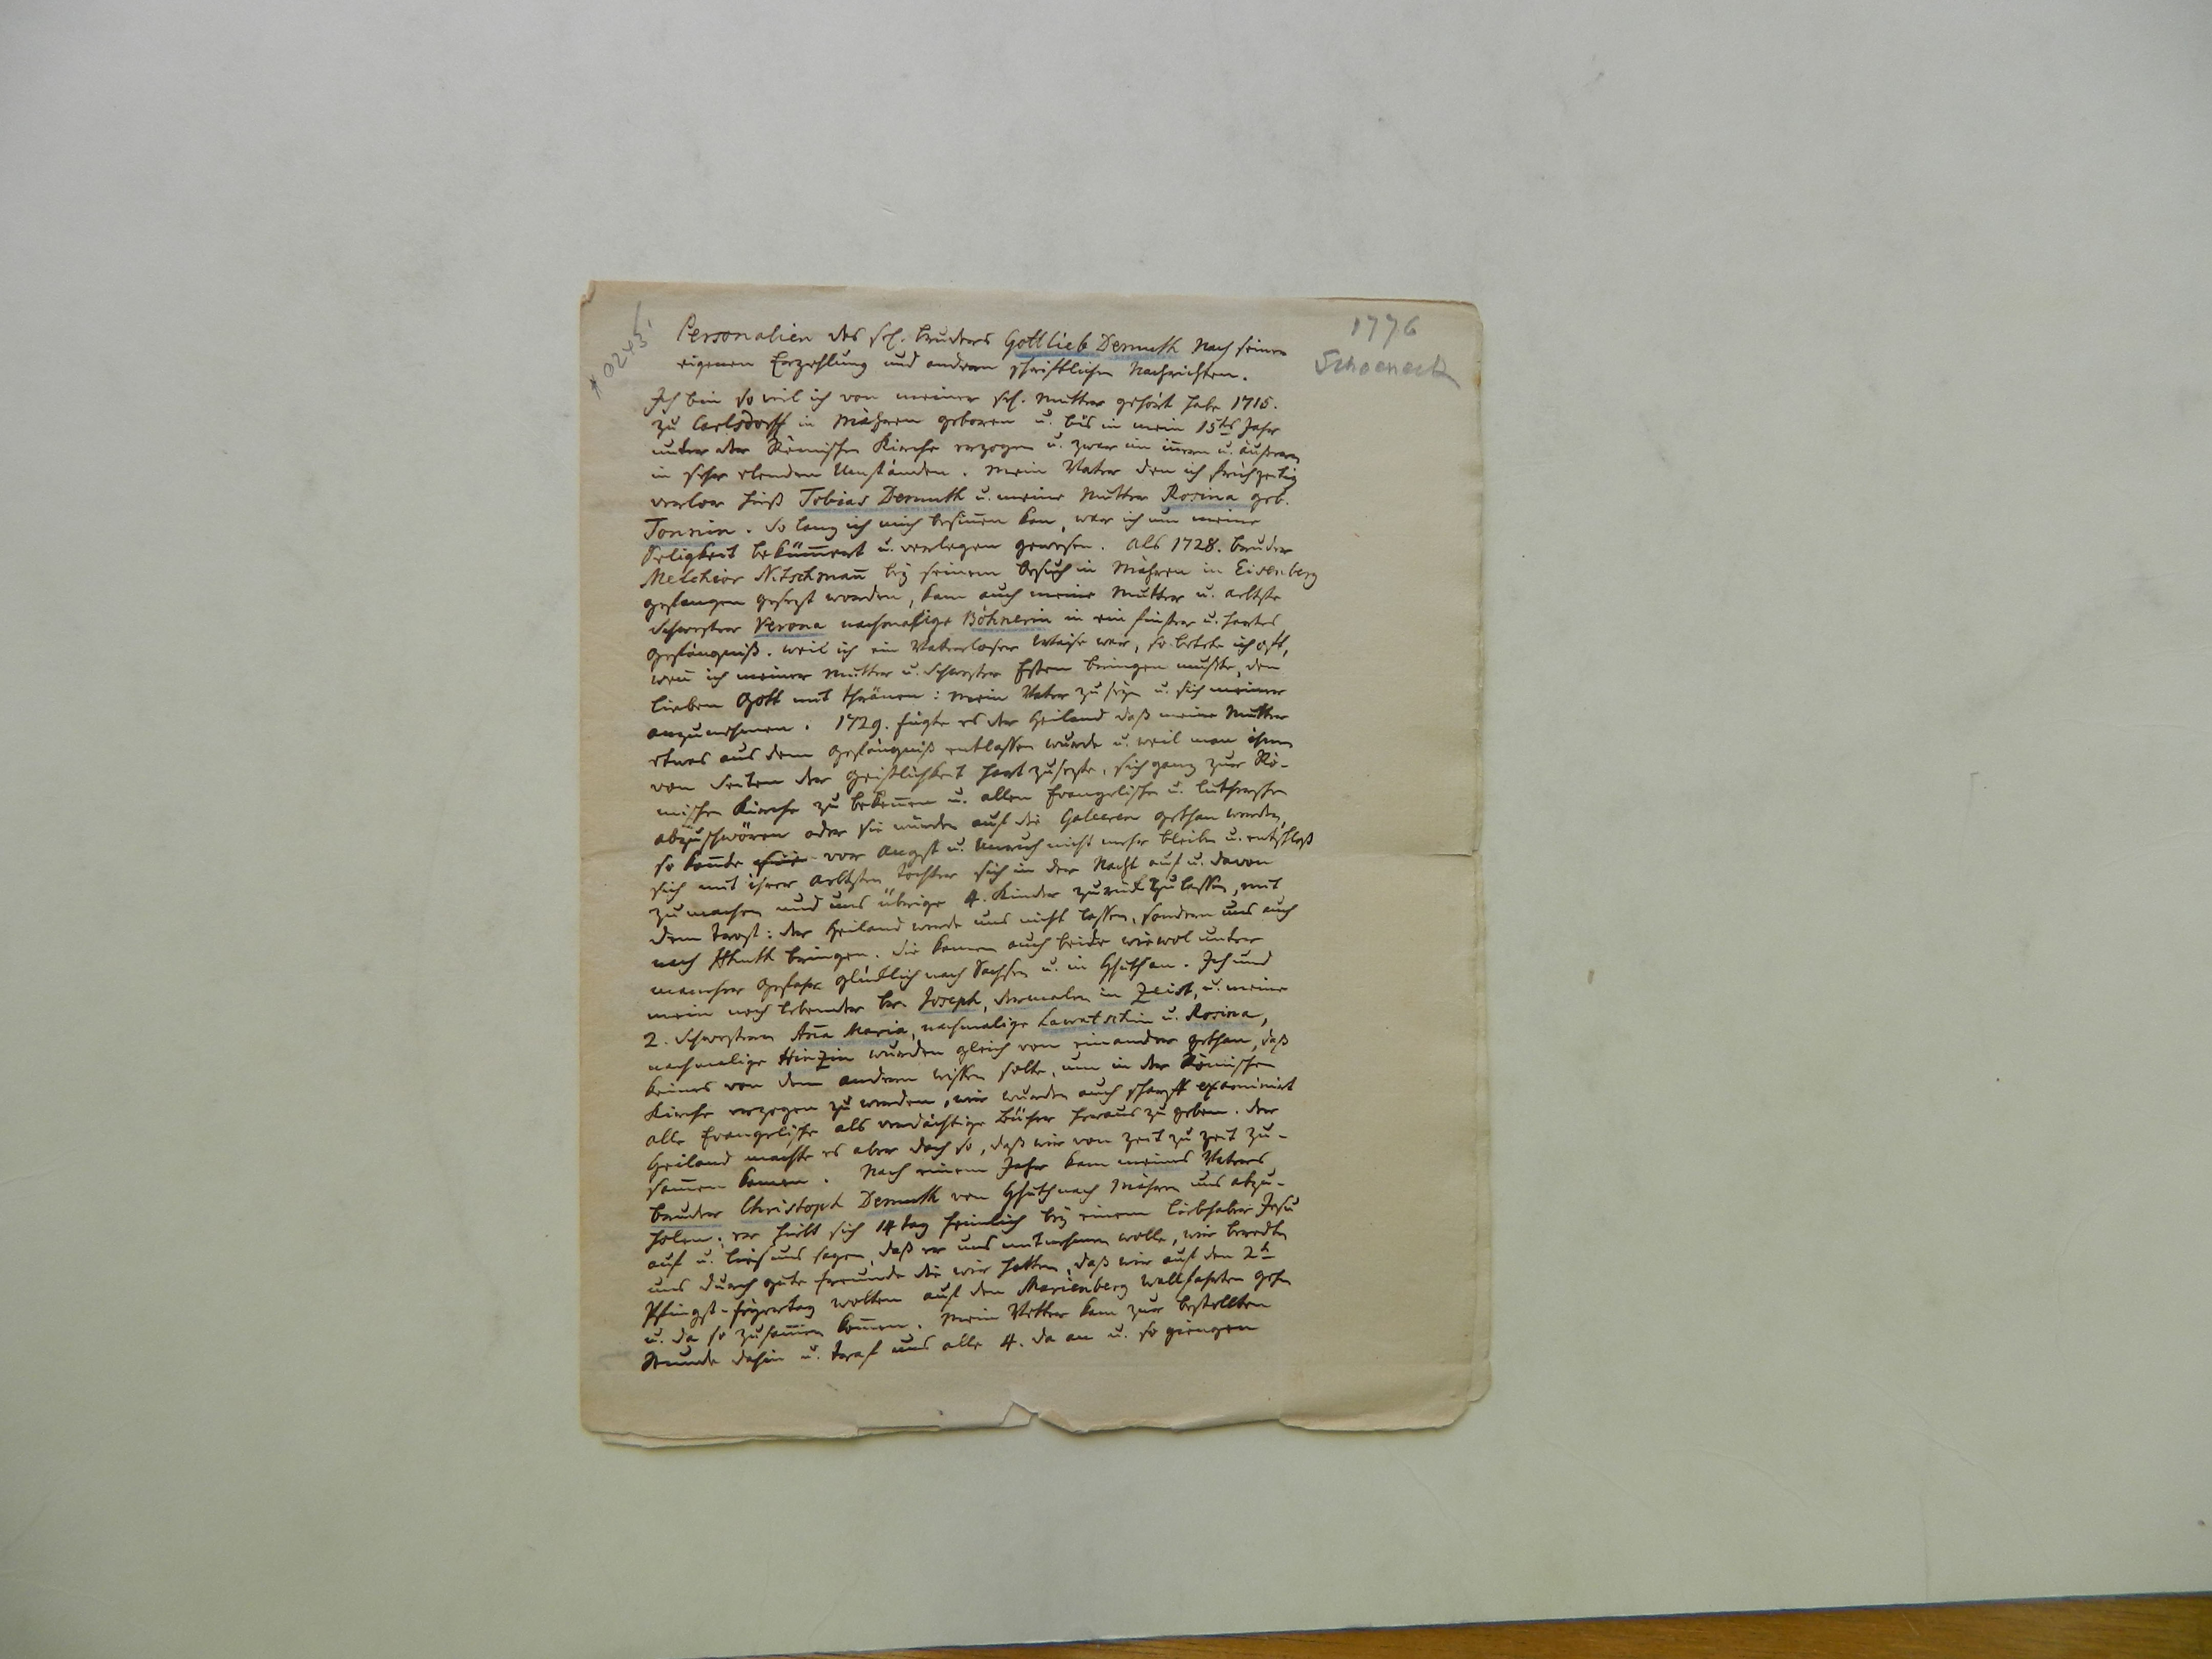 1776
Schoeneck
# 0243
Personalien des sel. Bruders Gottlieb Demuth nach seiner
eigenen Erzehlung und andern schriftlichen Nachrichten.
Ich bin so viel ich von meiner sel. Mutter gehört habe 1715.
zu Carlsdorff in Mähren geboren u. bis in mein 15tes Jahr
unter der Römischen Kirche erzogen u. zwar im iñern u. äußeren
in sehr elenden Umständen. Mein Vater den ich frühzeitig
verlor hieß Tobias Demuth u. meine Mutter Rosina geb.
Tonnin. So lang ich mich besiñen kan, war ich um meine
Seligkeit bekümmert u. verlegen gewesen. Als 1728. Bruder
Melchior Nitschmañ bey seinem Besuch in Mähren in Eisenberg
gefangen gesezt worden, kam auch meine Mutter u. ältste
Schwester Verona nachmalige Böhnerin in ein finster u. hartes
Gefängniß. Weil ich ein Vaterloser Waise war, so betete ich oft,
weñ ich meiner Mutter u. Schwester Essen bringen mußte, den
lieben Gott mit Thränen: mein Vater zu seyn u. sich meiner
anzunehmen. 1729. fügte es der Heiland daß meine Mutter
etwas aus dem Gefängniß entlassen wurde u. weil man ihnen
von Seiten der Geistlichkeit hart zusezte, sich ganz zur Rö-
mischen Kirche zu bekeñen u. allen Evangelische u. Luthersche
abzuschwören oder sie würden auf die Galeeren gethan werden,
so konde vor Angst u. Unruh nicht mehr bleiben u. entschloß
sich mit ihrer ältsten Tochter sich in der Nacht auf u. davon
zu machen und uns übrige 4. Kinder zurük zu lassen, mit
dem Trost: der Heiland werde uns nicht lassen, sondern uns auch
nach Hhuth bringen. Sie kamen auch beide wiewol unter
mancher Gefahr glüklich nach Sachsen u. in Hhuth an. Ich und
mein noch lebender Br. Joseph, dermalen in Zeist, u. meine
2. Schwestern Aña Maria, nachmalige Lawatschin u. Rosina,
nachmalige Hinzin wurden gleich von einander gethan, daß
keines von dem andern wissen solte, um in der Römischen
Kirche erzogen zu werden, wir wurden auch scharff examinirt
alle Evangelische als verdächtige Bücher heraus zu geben. Der
Heiland machte es aber doch so, daß wir von Zeit zu Zeit zu-
sam̃en kamen. Nach einem Jahr kam meines Vaters
Bruder Christoph Demuth von Hhuth nach Mähren uns abzu-
holen; er hielt sich 14 Tag heimlich bey einem Liebhaber Jesu
auf u. ließ uns sagen, daß er uns mitnehmen wolle, wir beredten
uns durch gute Freunde die wir hatten, daß wir auf den 2t
Pfingst-Feyertag wolten auf den Marienberg Wallfahrten gehen
u. da so zusam̃en kom̃en. Mein Vetter kam zur bestellten
Stunde dahin u. traf uns alle 4. da an u. so giengen